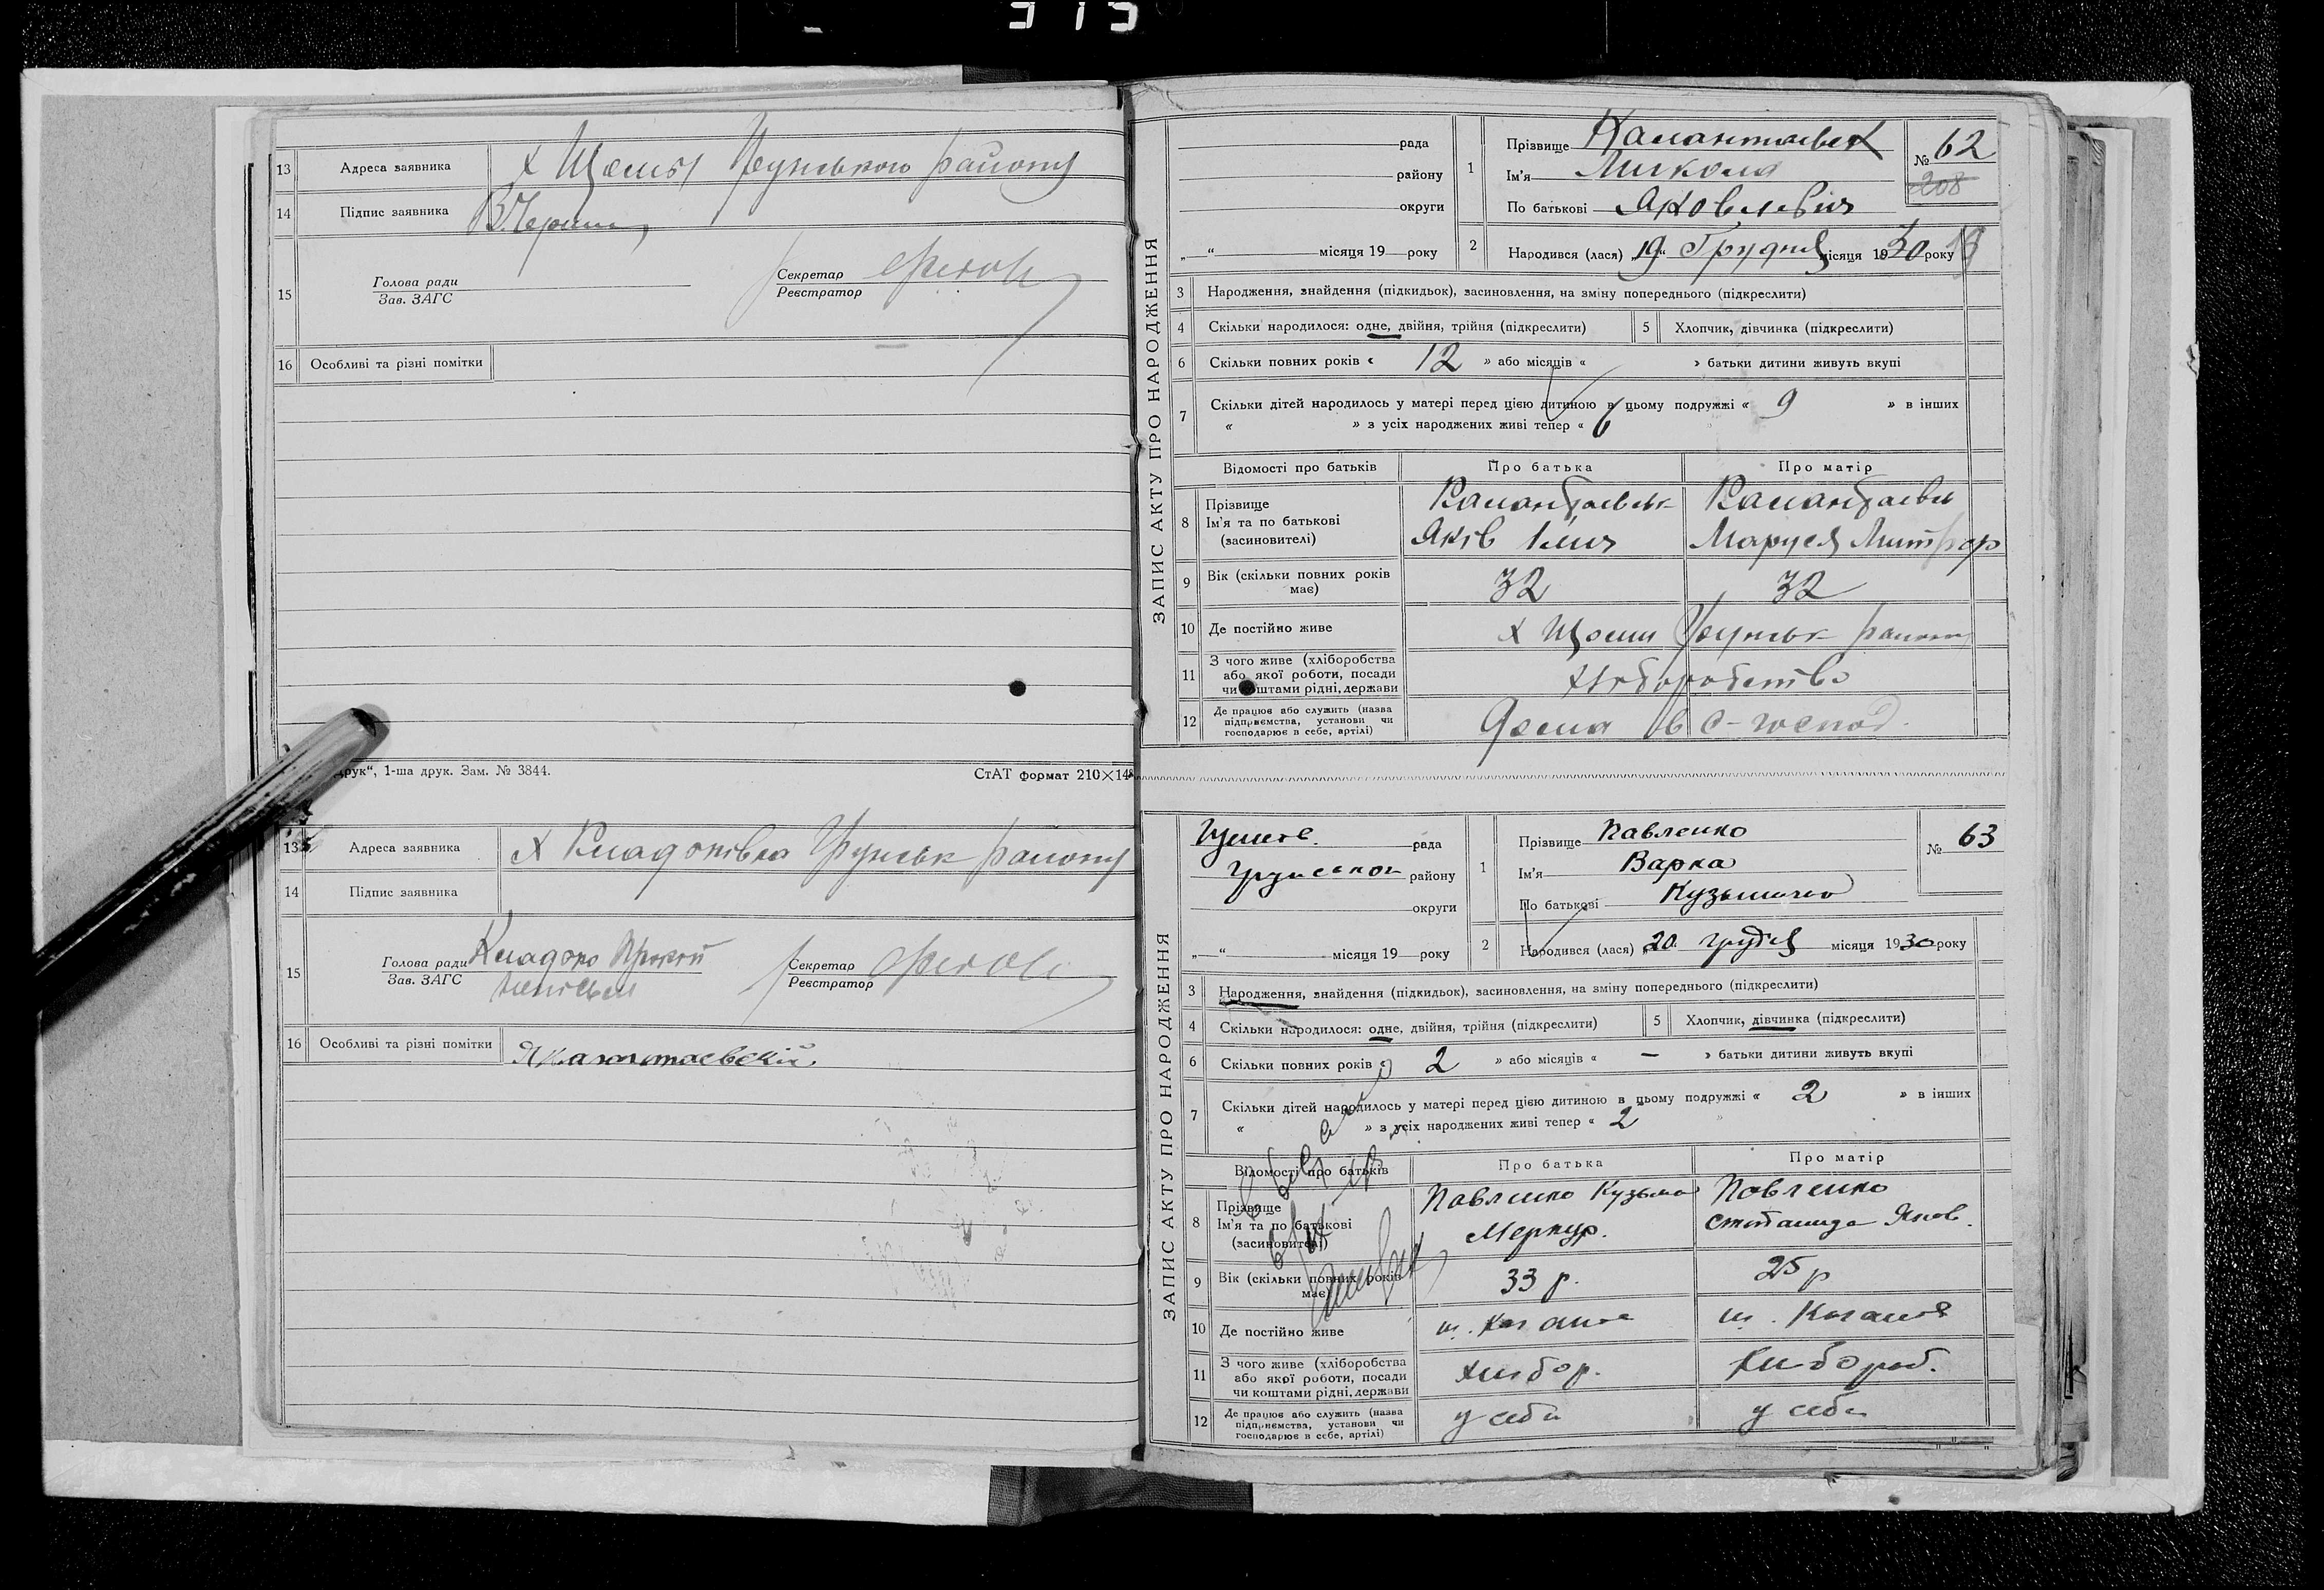 313
13 Адреса заявника х Щоми Грунського району
14 Підпис заявника
15 Голова ради
Зав. ЗАГС
Секретар
Реєстратор
16 Особливі та різні помітки
друк“, 1-ша друк. Зам. № 3844.
СтАТ формат 210×148
13 Адреса заявника х Кладоківка Грунськ району
14 Підпис заявника
15 Голова ради
Зав. ЗАГС
Секретар
Реєстратор
16 Особливі та різні помітки
ЗАПИС АКТУ ПРО НАРОДЖЕННЯ
рада
району
округи
„ “ місяця 19 року
1 Прізвище
Ім'я Микола
По батькові Яковлевич
№ 62
208
2 Народився (лася) „19“ Грудня місяця 1930 року
3 Народження, знайдення (підкидьок), засиновлення, на зміну попереднього (підкреслити)
4 Скільки народилося: одне, двійня, трійня (підкреслити)
5 Хлопчик, дівчинка (підкреслити)
6 Скільки повних років « 12 » або місяців « » батьки дитини живуть вкупі
7 Скільки дітей народилось у матері перед цією дитиною в цьому подружжі « 9 » в інших
« » з усіх народжених живі тепер « 6
Відомості про батьків Про батька Про матір
8 Прізвище
Ім'я та по батькові
(засиновителі)
Яків Ілич
Маруся Митроф
9 Вік (скільки повних років має) 32 32
10 Де постійно живе х Щоми Грунськ району
11 З чого живе (хліборобства
або якої роботи, посади
чи коштами рідні, держави
хліборобство
12 Де працює або служить (назва
підприємства, установи чи
господарює в себе, артілі)
Дома в с-господ.
ЗАПИС АКТУ ПРО НАРОДЖЕННЯ
рада
району
округи
„ “ місяця 19 року
1 Прізвище Павленко
Ім'я Варка
По батькові
№ 63
2 Народився (лася) „20 грудня місяця 1930 року
3 Народження, знайдення (підкидьок), засиновлення, на зміну попереднього (підкреслити)
4 Скільки народилося: одне, двійня, трійня (підкреслити)
5 Хлопчик, дівчинка (підкреслити)
6 Скільки повних років « 2 » або місяців « — » батьки дитини живуть вкупі
7 Скільки дітей народилось у матері перед цією дитиною в цьому подружжі « 2 » в інших
« » з усіх народжених живі тепер « 2
Відомості про батьків Про батька Про матір
8 Прізвище
Ім'я та по батькові
(засиновителі)
Павленко Кузьма
Меркур.
Павленко
Яков.
9 Вік (скільки повних років має) 33 р. 25 р
10 Де постійно живе
11 З чого живе (хліборобства
або якої роботи, посади
чи коштами рідні, держави
хлібор. хлібороб.
12 Де працює або служить (назва
підприємства, установи чи
господарює в себе, артілі)
у себе у себе